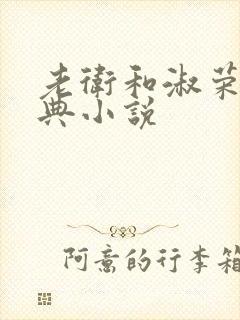 老衛和淑荣
典小説
阿意的行李箱